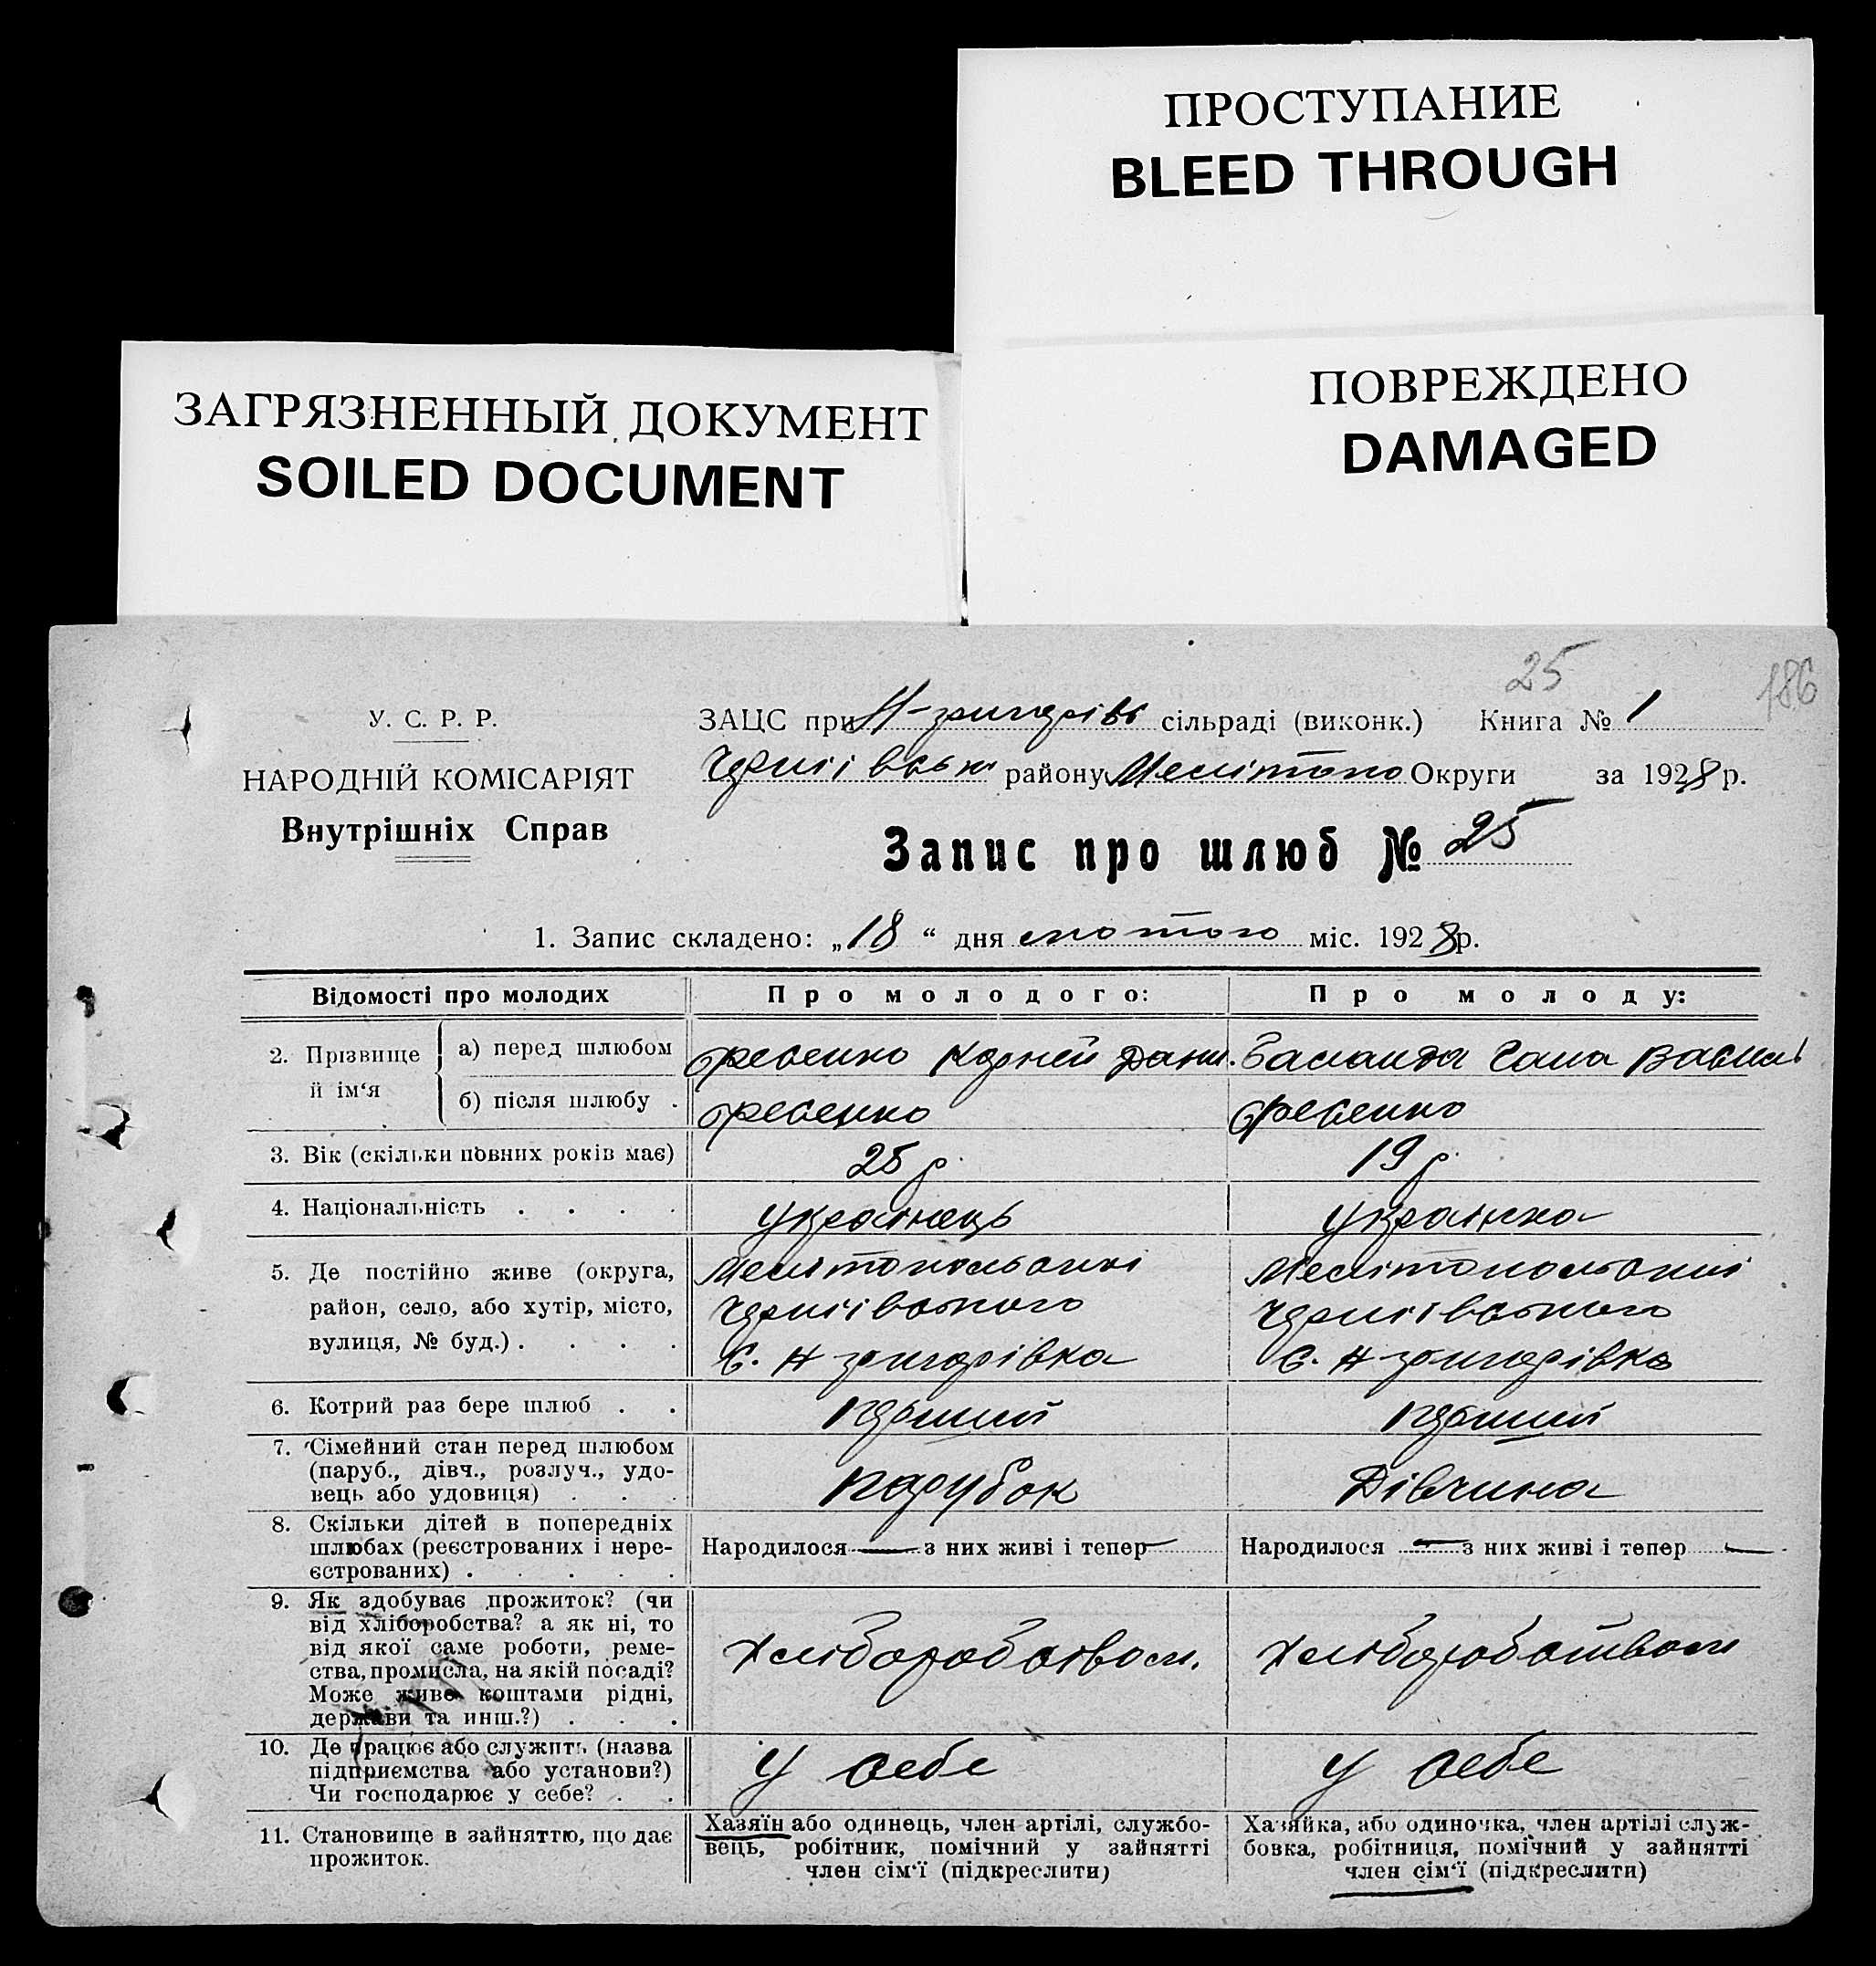 ПРОСТУПАНИЕ
BLEED THROUGH
ПОВРЕЖДЕНО
DAMAGED
ЗАГРЯЗНЕННЫЙ ДОКУМЕНТ
SOILED DOCUMENT
25
186
У. С. Р. Р.
НАРОДНІЙ КОМІСАРІЯТ
Внутрішніх Справ
ЗАЦС при Н-григорівс сільраді (виконк.) Книга № 1
району Мелітопо Округи за 1928 р.
Запис про шлюб № 25
1. Запис складено: „18“ дня лютого міс. 1928 р.
Відомості про молодих
Про молодого:
Про молоду:
2. Прізвище й ім‘я
а) перед шлюбом
Корней Дани.
Ва Василь
б) після шлюбу .
3. Вік (скільки повних років має)
25 р.
19 р.
4. Національність . . . .
Українець
Українка
5. Де постійно живе (округа,
район, село, або хутір, місто,
вулиця, № буд.) . . . .
Мелітопольскої
Чернігівського
С. Н григорівка
Мелітопольскої
Чернігівського
С. Н григорівка
6. Котрий раз бере шлюб . .
перший
перший
7. Сімейний стан перед шлюбом
(паруб., дівч., розлуч., удо-
вець або удовиця) . . .
парубок
Дівчина
8. Скільки дітей в попередніх
шлюбах (реєстрованих і нере-
єстрованих) . . . . .
Народилося — з них живі і тепер —
Народилося — з них живі і тепер —
9. Як здобуває прожиток? (чи
від хліборобства? а як ні, то
від якої саме роботи, реме-
ства, промисла, на якій посаді?
Може живе коштами рідні,
держави та инш.?) . . .
Хліборобсівом.
Хліборобством
10. Де працює або служить (назва
підприємства або установи?)
Чи господарює у себе? . .
У себе
У себе
11. Становище в зайняттю, що дає
прожиток.
Хазяїн або одинець, член артілі, службо-
вець, робітник, помічний у зайнятті
член сім‘ї (підкреслити)
Хазяйка, або одиночка, член артілі служ-
бовка, робітниця, помічний у зайнятті
член сім‘ї (підкреслити)